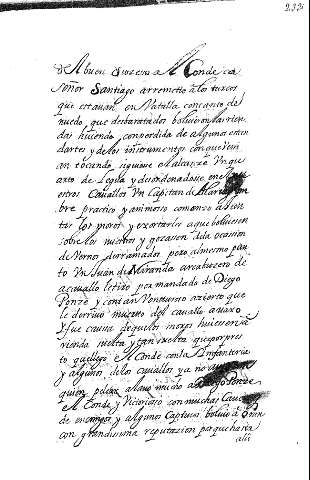 233
de Abuen
el Conde ca
señor Santiago arremetio a los turcos
que estauan en Batalla con tanto de
nuedo, que desbaratados boluieron las rien
das huiendo con perdida de algunos estan
dartes y de los instrumentos con que ven
an tocando, siguiose el alcanze Un qu
arto de Legua y desordenadose en
estros Cauallos Un Capitan de
bre practico y animoso comenzo a
tar los moros y exortarles a que boluiesen
sobre los nuestros y gozasen de la ocasion
de vernos derramados, pero al mesmo pun
to Un Juan de Miranda arcabuzero de
acauallo le tiro por mandado de Diego
Ponze y con tan Venturoso acierto que
le derriuo muerto del cauallo auaxo
y fue causa de que los moros huiesen
rienda suelta y tan suelta que por pres
to que llego el Conde con la Infanteria
y algunos de los cauallos ya no
quien pelear alauo mucho a Diego Ponze
el Conde y Victorioso con muchas
de enemigos y algunos Captiuos boluio a Oran
con grandissima reputacion porque hacia
alli